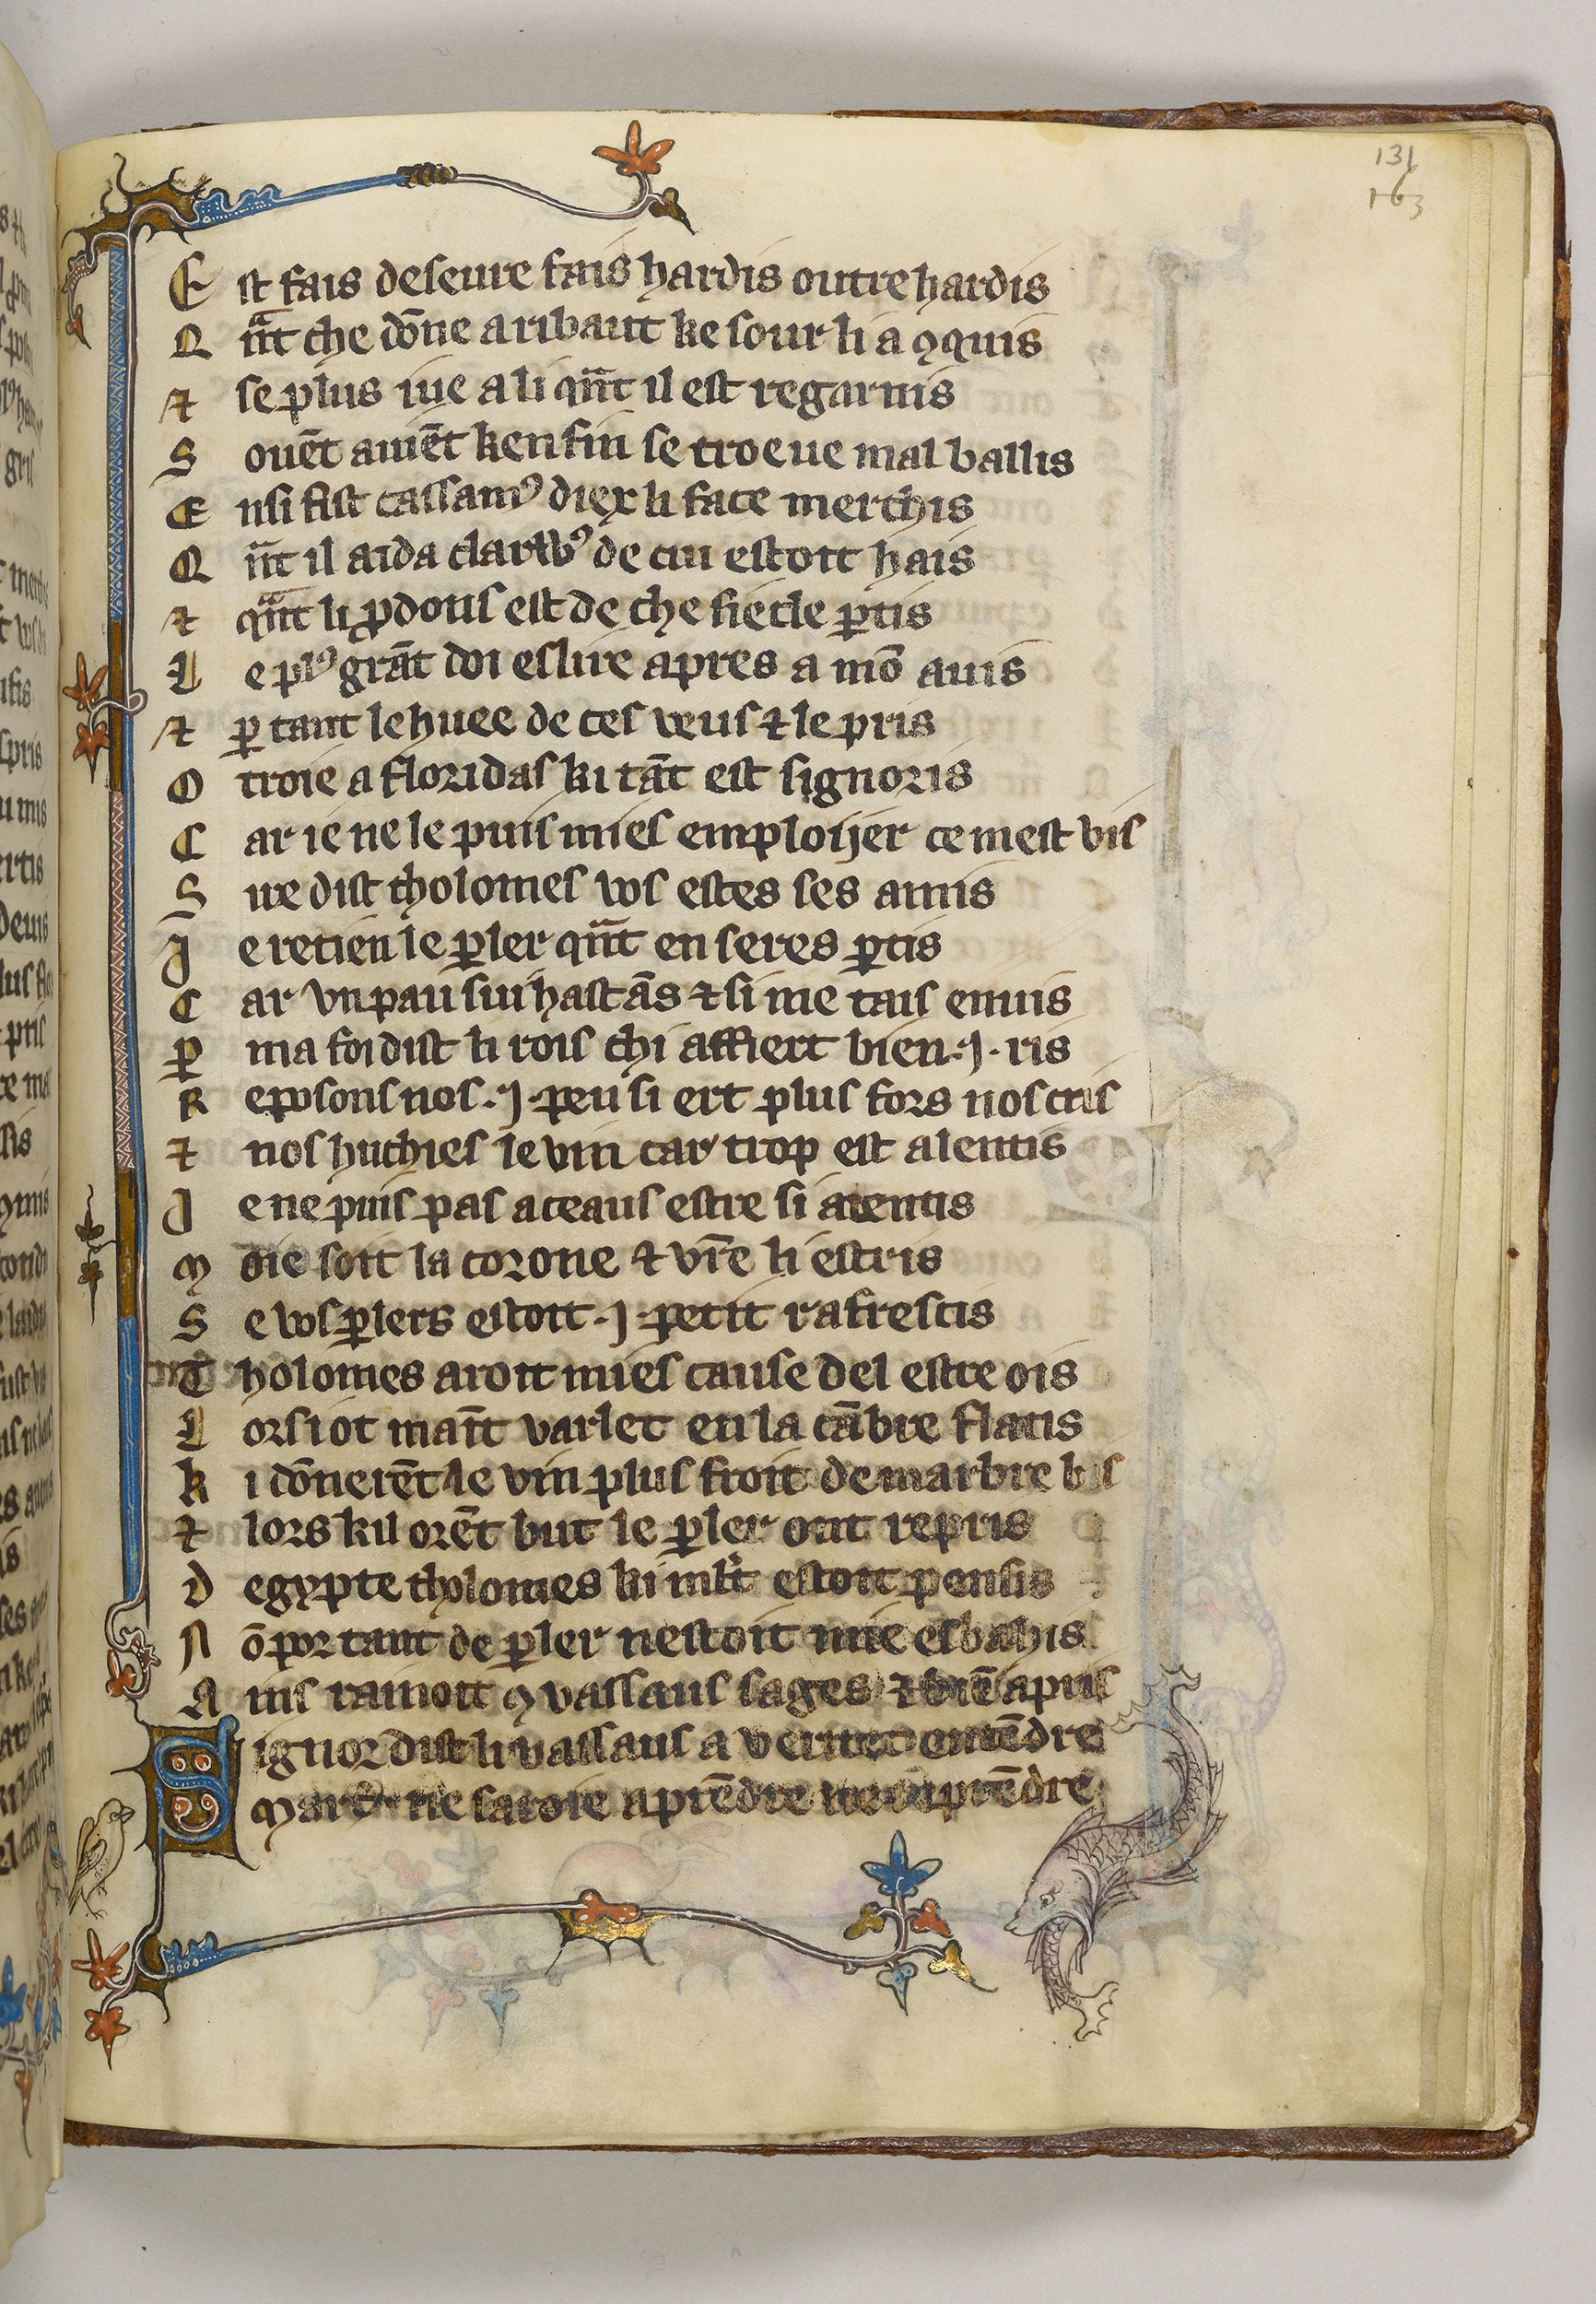 131
163
Est fais deseure fais hardis outre hardis
Qnt che dōne a ribaut ke sour li a ꝯquis
⁊ se plus iue a li qnt il est regarnis
Souēt auiēt ken fin se troeue mal ballis
Ensi fist cassamꝰ diex li face merchis
Qnt il aida clarwꝰ de cui estoit hais
⁊ qnt li ꝓdons est de che siecle ꝑtis
Le plꝰ grāt doi eslire apres a mō auis
⁊ ꝑ tant le huee de ces veus ⁊ le pris
Otroie a floridas ki tāt est signoris
Car ie ne le puis mies emploijer ce mest vis
Sire dist tholomes vos estes ses amis
Je retien le ꝑler qnt en seres ꝑtis
Car vn pau sui hastās ⁊ si me tais enuis
ꝑ ma foi dist li rois chi affiert bien .j. ris
Reposons nos .j. peu si ert plus fors nos cris
⁊ nos huchies le vin car trop est alentis
Je ne puis pas a ceaus estre si atentis
Moie soit la corone ⁊ vr̄e li estris
Se vos ꝑlers estoit .j. petit rafrescis
Tholomes aroit mies cause del estre ois
Lors i ot mait varlet en la cābre flatis
Ki dōnerēt le vin plus froit de marbre bis
⁊ lors kil orēt but le ꝑler ont repris
Degypte tholomes ki mlt estoit pensis
Nō por tant de ꝑler nestoit mie esbahis
Ains rainoit ꝯ vassaus sages ⁊ biē apris
Signor dist li vassaus a veritet entēdre
Mars ne saroie aprēdre